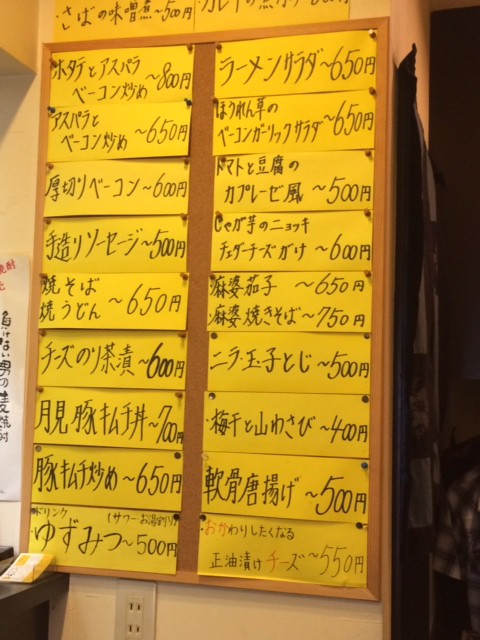 ・さばの味噌煮〜500円
ホタテとアスパラ
ベーコン炒め〜800円
アスパラと
ベーコン炒め〜650円
厚切りベーコン〜600円
手造りソーセージ〜500円
焼そば
焼うどん〜650円
チーズのり茶漬〜600円
月見豚キムチ丼〜700円
豚キムチ炒め〜650円
ドリンク
(サワー・お湯割り)
・ゆずみつ〜500円
ラーメンサラダ〜650円
ほうれん草の
ベーコンガーリックサラダ〜650円
トマトと豆腐の
カプレーゼ風〜500円
じゃが芋のニョッキ
チェダーチーズがけ〜600円
・麻婆茄子〜650円
・麻婆焼きそば〜750円
・ニラ玉子とじ〜500円
・梅干と山わさび〜400円
軟骨唐揚げ〜500円
・おかわりしたくなる
正油漬けチーズ〜550円
負けない男の麦焼酎